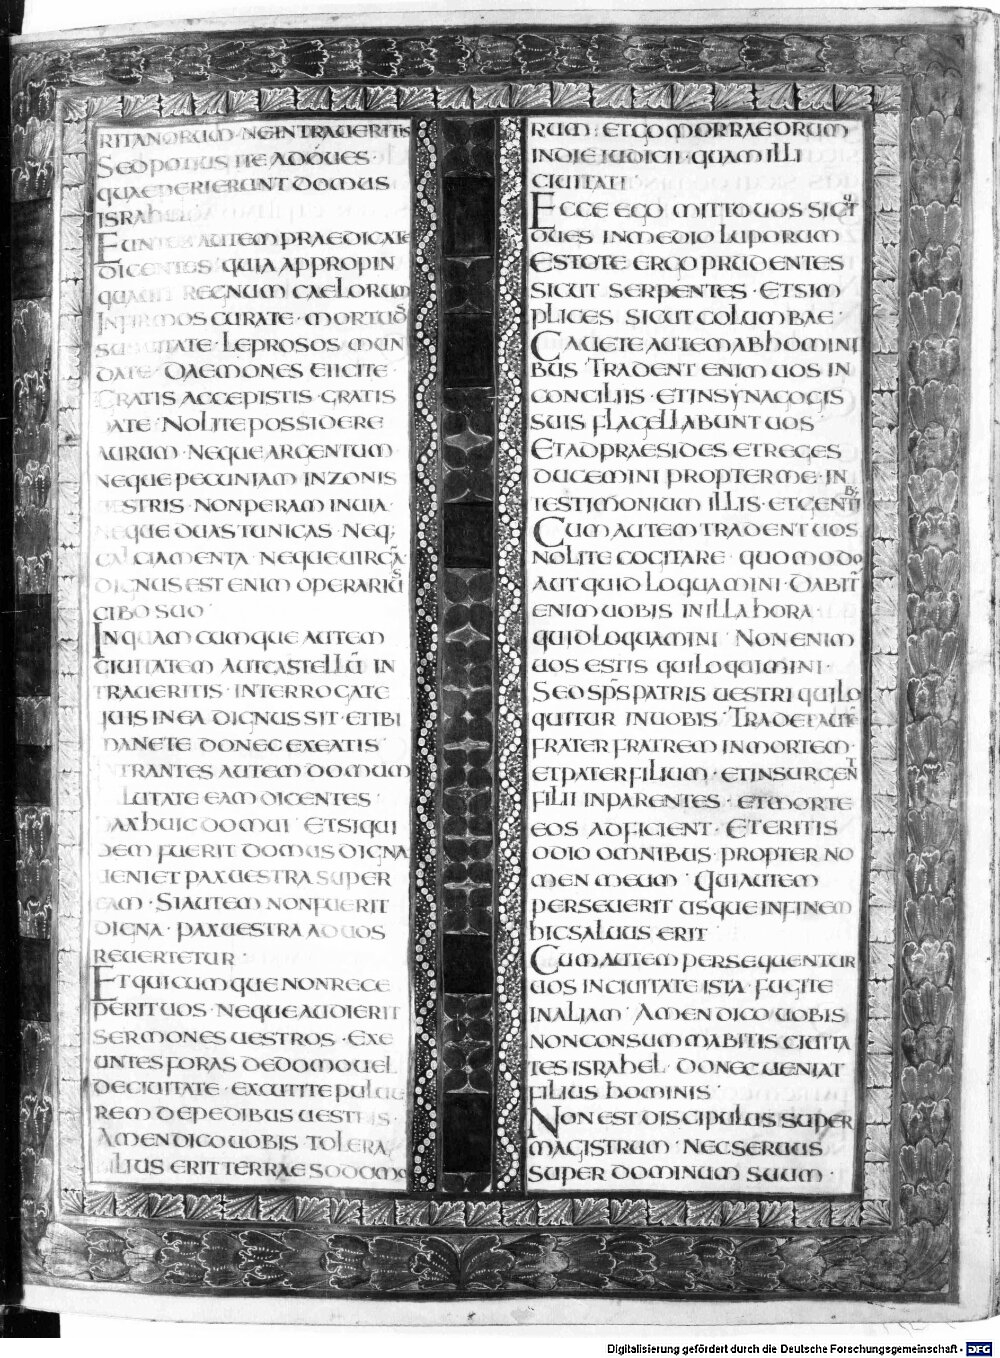 RITANORUM NEINTRAUERITIS
SEDPOTIUS ITE ADOUES·
QUAEPERIERUNT DOMUS
ISRAHEL
EUNTES AUTEM PRAEDICATE
DICENTES· QUIA APPROPIN
QUAUIT REGNUM CAELORUM
INFIRMOS CURATE· MORTUOS
SUSCITATE· LEPROSOS MUN
DATE· DAEMONES EIICITE·
GRATIS ACCEPISTIS· GRATIS
DATE· NOLITE POSSIDERE
AURUM· NEQUE ARGENTUM·
NEQUE PECUNIAM INZONIS
UESTRIS· NONPERAM INUIA·
NEQUE DUAS TUNICAS· NEQ;
CALCIAMENTA· NEQUE UIRGĀ·
DIGNUS EST ENIM OPERARIUS
CIBO SUO·
INQUAM CUMQUE AUTEM
CIUITATEM AUTCASTELLŪ IN
TRAUERITIS· INTERROGATE
QUIS INEA DIGNUS SIT· ETIBI
MANETE DONEC EXEATIS·
INTRANTES AUTEM DOMUM
SALUTATE EAM DICENTES·
PAXHUIC DOMUI· ETSIQUI
DEM FUERIT DOMUS DIGNA
UENIET PAXUESTRA SUPER
EAM· SIAUTEM NONFUERIT
DIGNA· PAXUESTRA ADUOS
REUERTETUR·
ETQUICUMQUE NONRECE
PERITUOS· NEQUE AUDIERIT
SERMONES UESTROS· EXE
UNTES FORAS DEDOMO UEL
DECIUITATE· EXCUTITE PULUE
REM DEPEDIBUS UESTRIS·
AMEN DICO UOBIS TOLERA
BILIUS ERIT TERRAE SODOMO
RUM· ETGOMORRAEORUM
INDIE IUDICII· QUAM ILLI
CIUITATI·
ECCE EGO MITTO UOS SICUT
OUES INMEDIO LUPORUM
ESTOTE ERGO PRUDENTES
SICUT SERPENTES· ETSIM
PLICES SICUT COLUMBAE·
CAUETE AUTEM ABHOMINI
BUS· TRADENT ENIM UOS IN
CONCILIIS· ETINSYNAGOGIS
SUIS FLAGELLABUNT UOS·
ETADPRAESIDES ETREGES
DUCEMINI PROPTER ME· IN
TESTIMONIUM ILLIS· ETGENTIB;
CUM AUTEM TRADENT UOS
NOLITE COGITARE· QUOMODO
AUT QUID LOQUAMINI· DABIT̄
ENIM UOBIS INILLA HORA·
QUID LOQUAMINI· NON ENIM
UOS ESTIS QUI LOQUIMINI·
SED SP̄S PATRIS UESTRI QUI LO
QUITUR INUOBIS· TRADET AUTĒ
FRATER FRATREM INMORTEM·
ETPATER FILIUM· ETINSURGENT
FILII INPARENTES· ETMORTE
EOS ADFICIENT· ETERITIS
ODIO OMNIBUS· PROPTER NO
MEN MEUM· QUI AUTEM
PERSEUERIT USQUE INFINEM
HIC SALUUS ERIT·
CUM AUTEM PERSEQUENTUR
UOS INCIUITATE ISTA· FUGITE
INALIAM· AMEN DICO UOBIS
NONCONSUMMABITIS CIUITA
TES ISRAHEL· DONEC UENIAT
FILIUS HOMINIS·
NON EST DISCIPULUS SUPER
MAGISTRUM· NECSERUUS
SUPER DOMINUM SUUM·
Digitalisierung gefördert durch die Deutsche Forschungsgemeinschaft - DFG